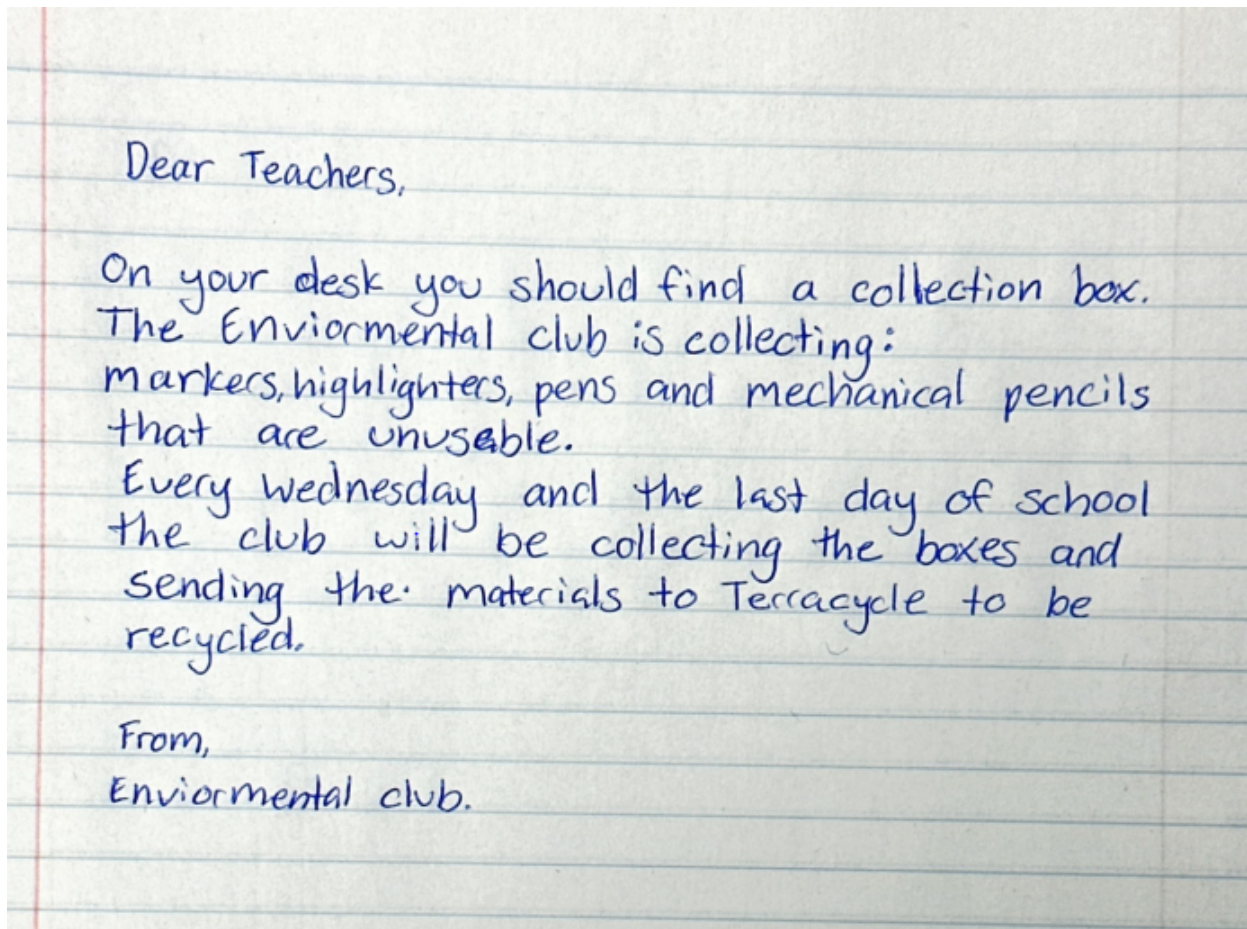 Dear Teachers,
On your desk you should find a collection box.
The Enviormental club is collecting:
markers, highlighters, pens and mechanical pencils
that are unusable.
Every wednesday and the last day of school
the club will be collecting the boxes and
sending the materials to Terracycle to be
recycled.
From,
Enviormental club.